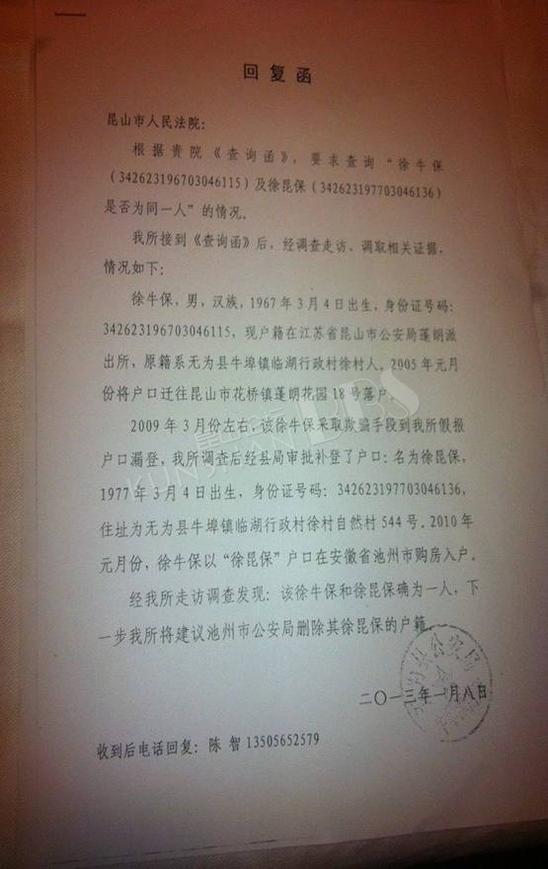 回复函
昆山市人民法院：
根据贵院《查询函》，要求查询“徐牛保
（342623196703046115）及徐昆保（342623197703046136）
是否为同一人”的情况。
我所接到《查询函》后，经调查走访、调取相关证据，
情况如下：
徐牛保，男，汉族，1967年3月4日出生，身份证号码：
342623196703046115，现户籍在江苏省昆山市公安局蓬朗派
出所，原籍系无为县牛埠镇临湖行政村徐村人，2005年元月
份将户口迁往昆山市花桥镇蓬朗花园18号落户。
2009年3月份左右，该徐牛保采取欺骗手段到我所假报
户口漏登，我所调查后经县局审批补登了户口：名为徐昆保，
1977年3月4日出生，身份证号码：342623197703046136，
住址为无为县牛埠镇临湖行政村徐村自然村544号。2010年
元月份，徐牛保以“徐昆保”户口在安徽省池州市购房入户。
经我所走访调查发现：该徐牛保和徐昆保确为一人，下
一步我所将建议池州市公安局删除其徐昆保的户籍。
二〇一三年一月八日
收到后电话回复：陈 智 13505652579
KUNSHAN BBS